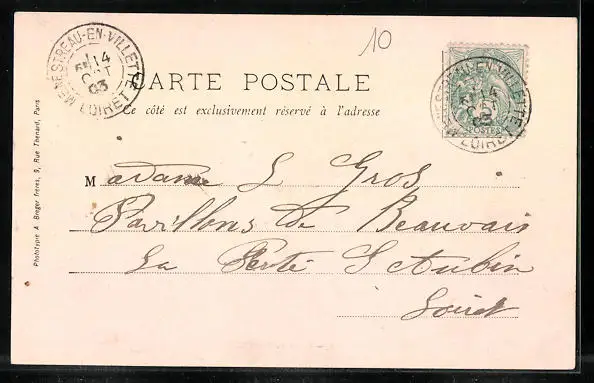 10
MENESTREAU-EN-VILLETTE
14
OCT
03
LOIRET
CARTE POSTALE
Ce côté est exclusivement réservé à l'adresse
POSTES
MENESTREAU-EN-VILLETTE
14
OCT
03
LOIRET
Madame L Gros
Pavillons de Beauvais
La Ferté St Aubin
Loiret
Phototypie A. Breger frères, 9, Rue Thénard, Paris